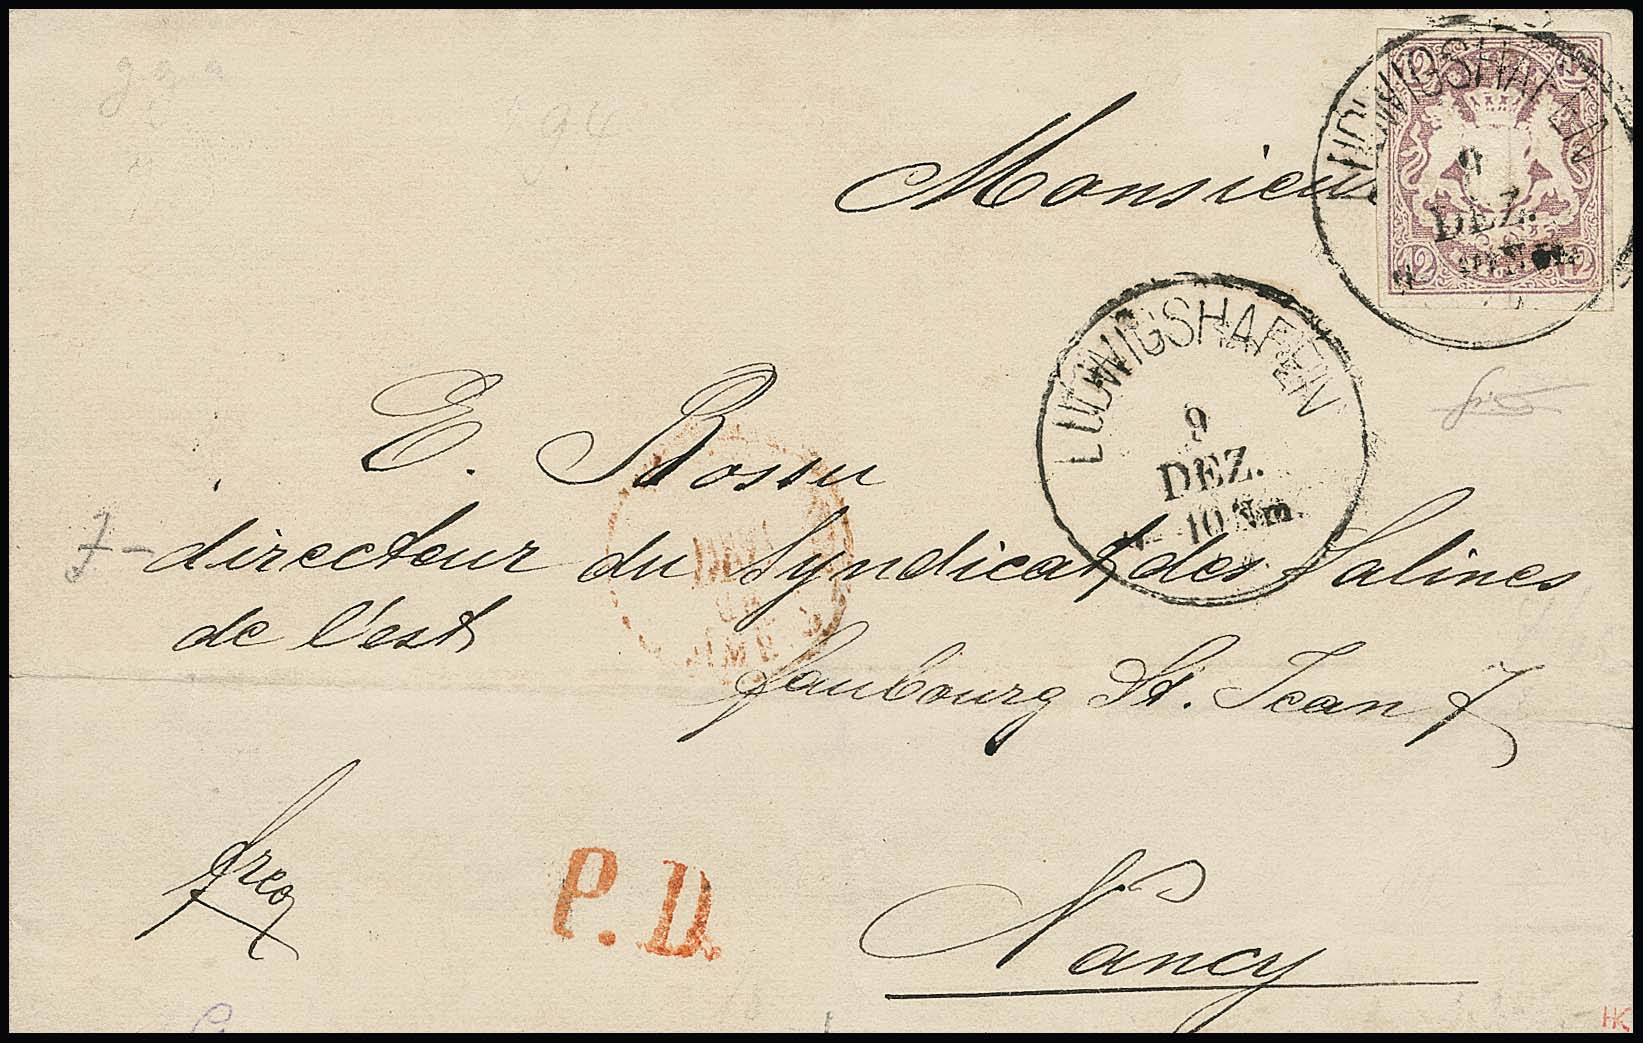 12 12
LUDWIGSHAFEN
9
DEZ.
12 12
Monsieur
LUDWIGSHAFEN
9
DEZ.
10 Nm
E. Bossu
directeur du Syndicat des Salines
de l'est
faubourg St. Jean 7
frco
P.D.
Nancy
HK